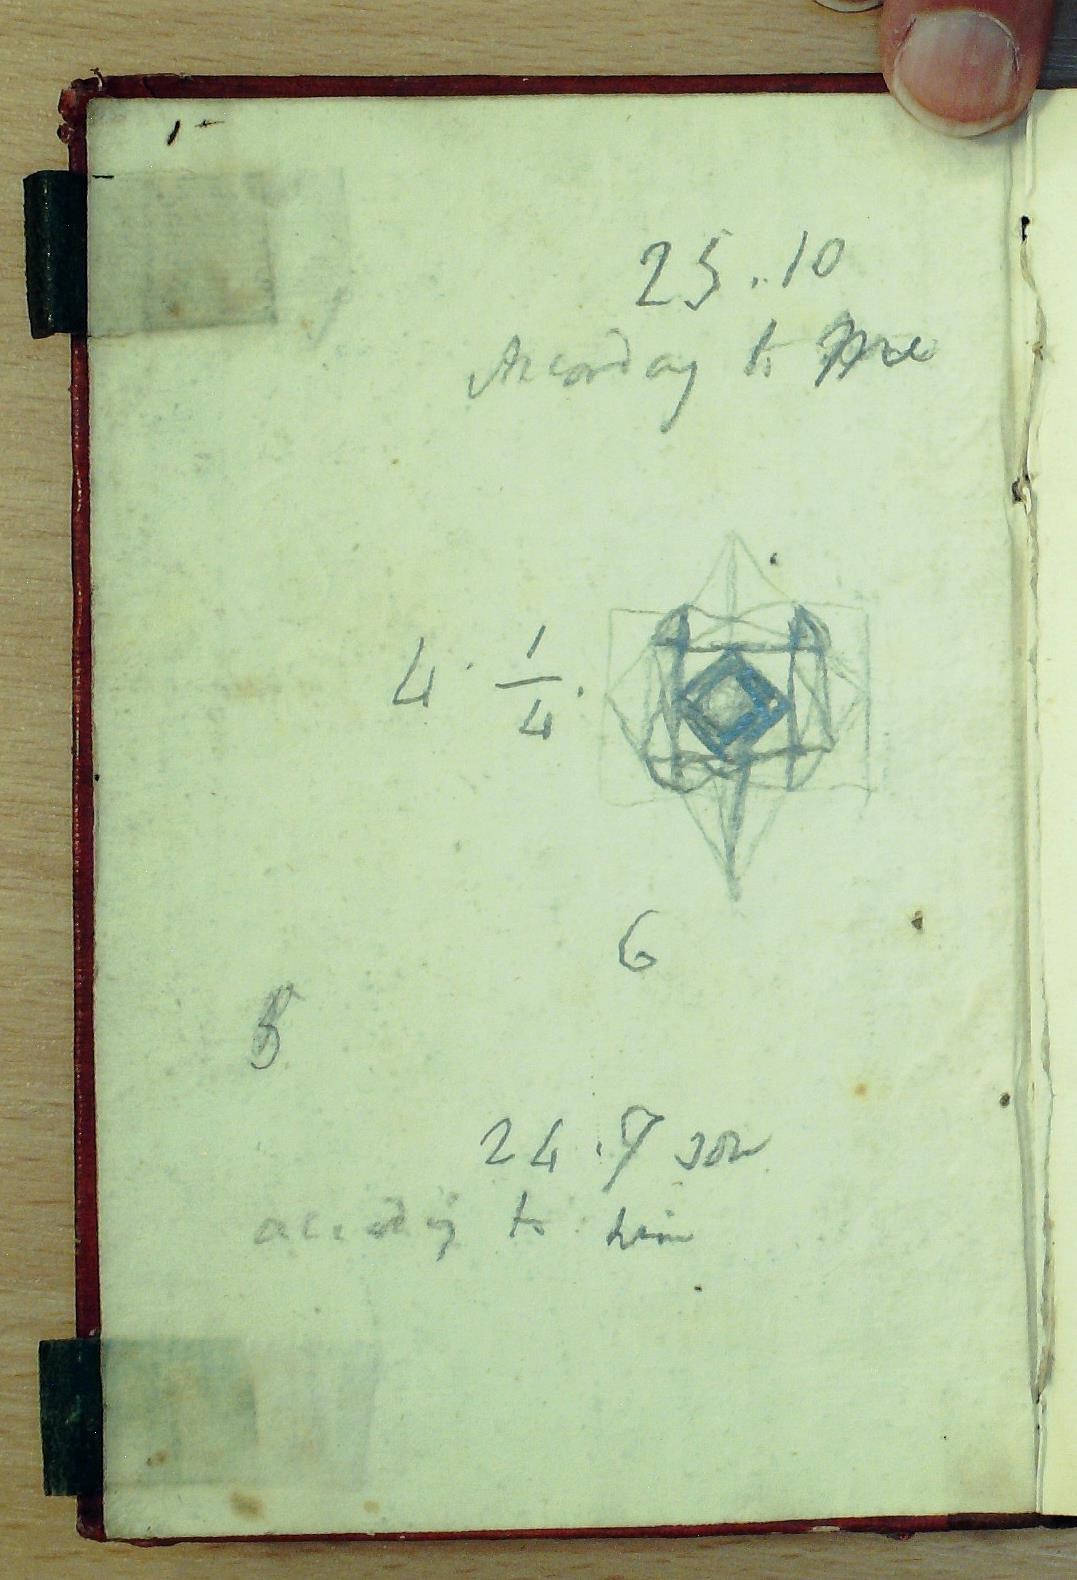 25.10
According to me
4 1/4.
6
5
24.7
according to him